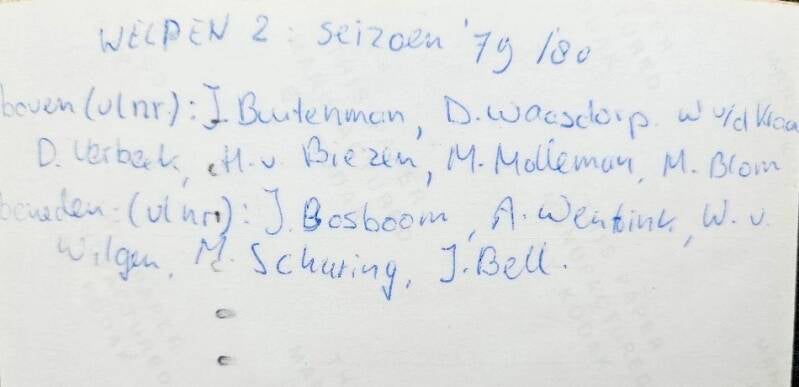 WELPEN 2 : seizoen '79 /80
boven (vlnr) : J Buutenman, D. Waasdorp. W v/d Kraa
D. Verbeek, H. v Biezen, M. Molleman, M. Blom
beneden : (vlnr) : J. Bosboom, A. Wentink, W. v.
Wilgen, M. Schuring, J. Bell.